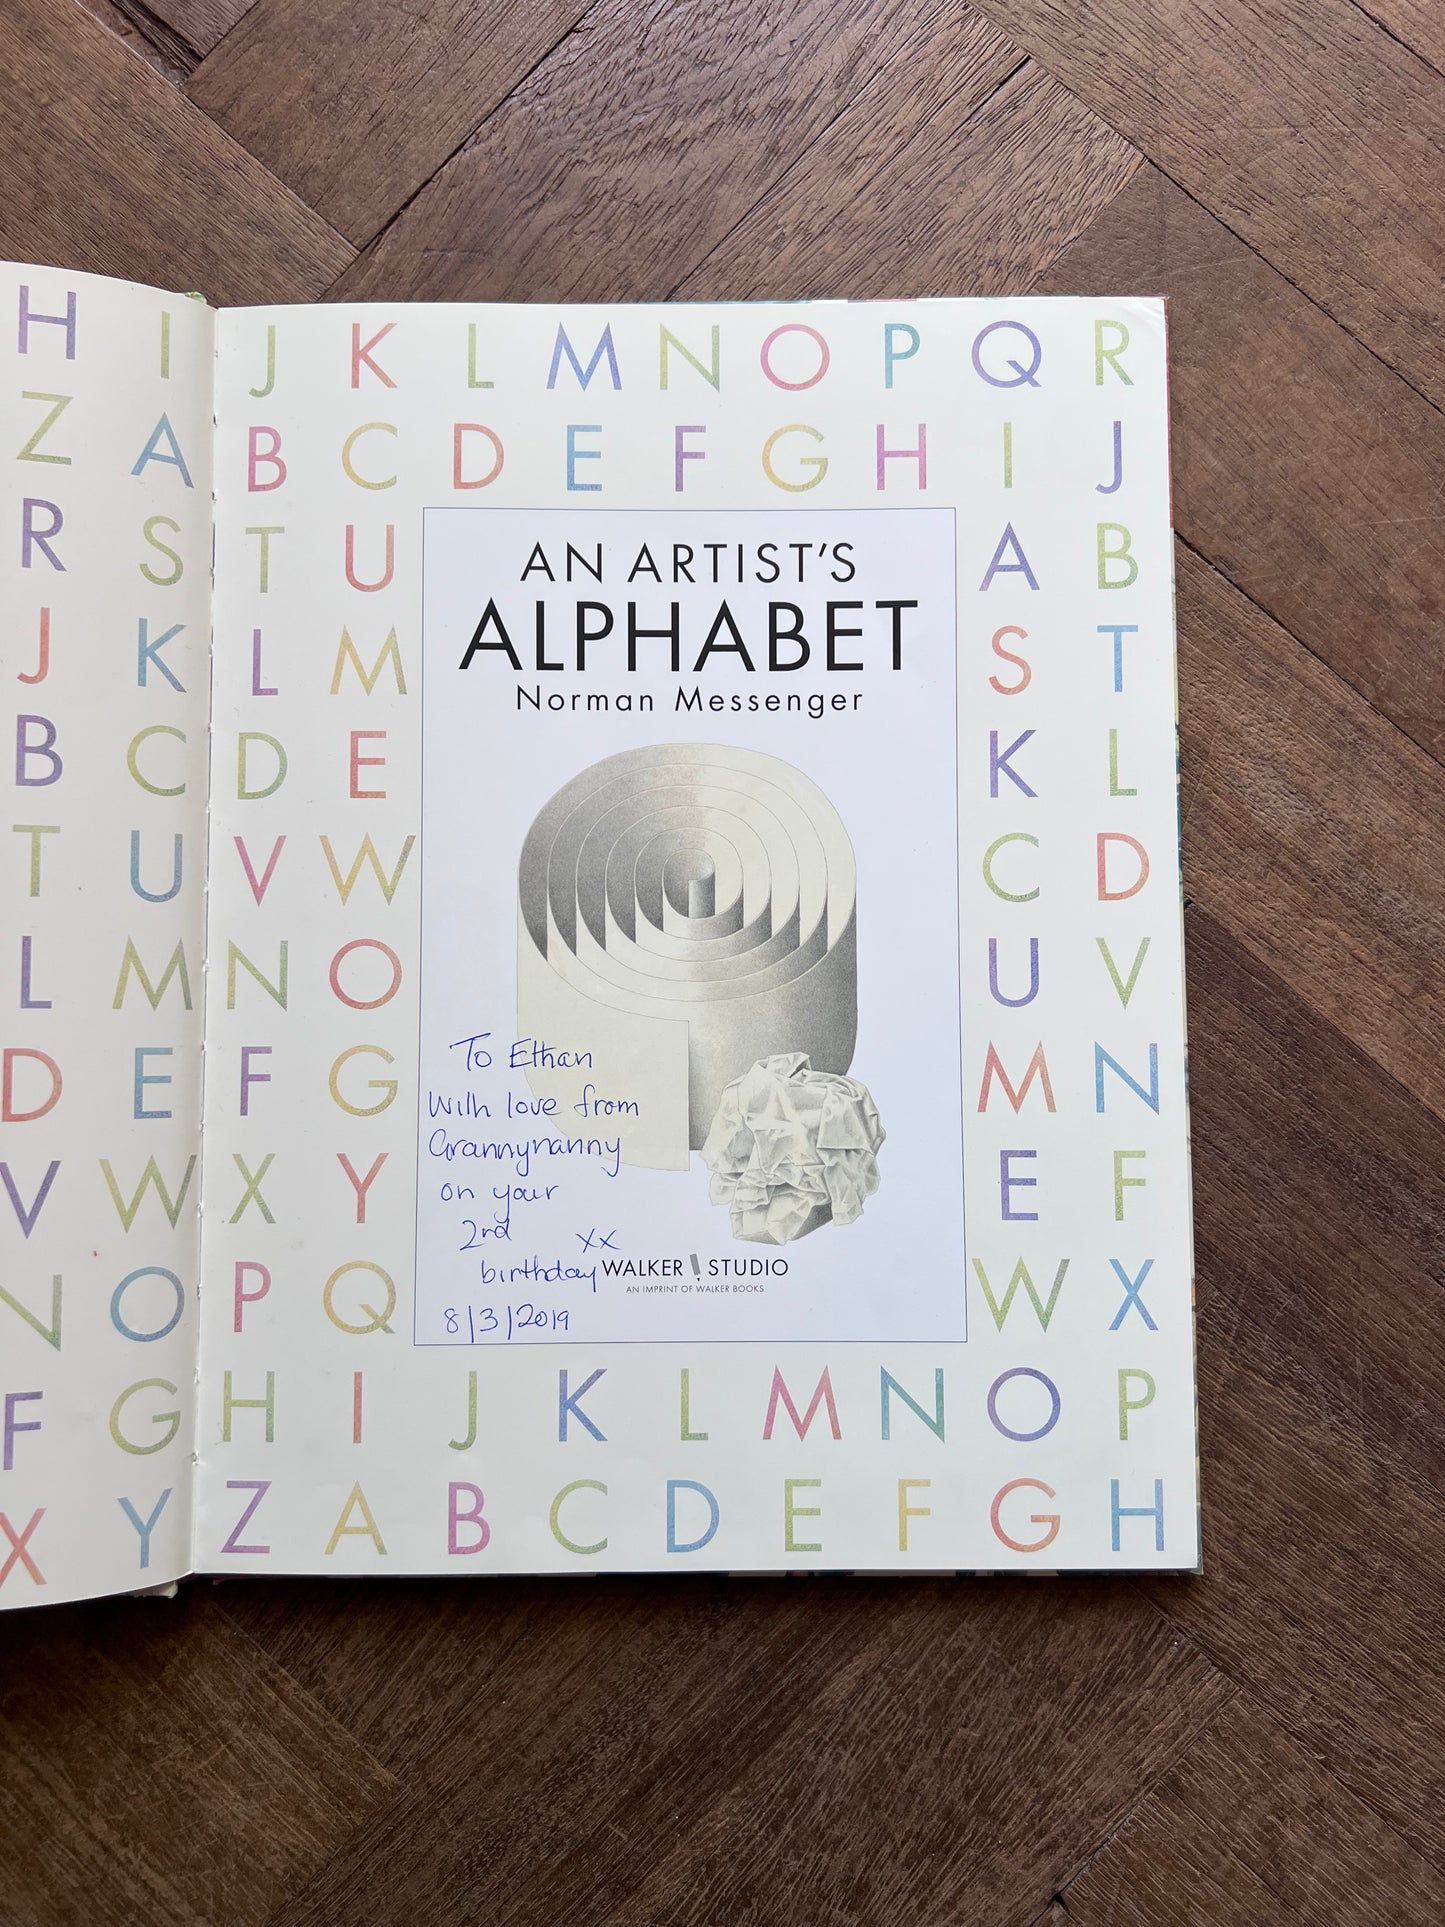 H I J K L M N O P Q R
Z A B C D E F G H I J
R S T U A B
J K L M S T
B C D E K L
T U V W C D
L M N O U V
D E F G M N
V W X Y E F
N O P Q W X
F G H I J K L M N O P
X Y Z A B C D E F G H
AN ARTIST'S
ALPHABET
Norman Messenger
To Ethan
With love from
Grannynanny
on your
2nd
birthday xx
8/3/2019
WALKER STUDIO
AN IMPRINT OF WALKER BOOKS